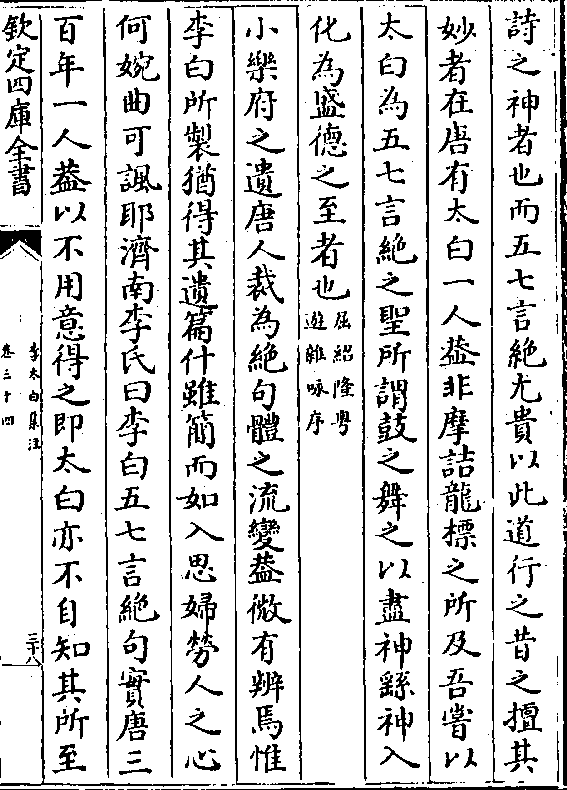 詩之神者也而五七言絶尤貴以此道行之昔之擅其
妙者在唐有太白一人葢非摩詰龍標之所及吾嘗以
太白為五七言絶之聖所謂鼓之舞之以盡神繇神入
化為盛德之至者也屈紹隆粤
遊雜咏序
小樂府之遺唐人裁為絶句體之流變葢微有辨焉惟
李白所製猶得其遺篇什雖簡而如入思婦勞人之心
何婉曲可諷耶濟南李氏曰李白五七言絶句實唐三
百年一人葢以不用意得之即太白亦不自知其所至
欽定四庫全書
李太白集注
卷三十四
三十八